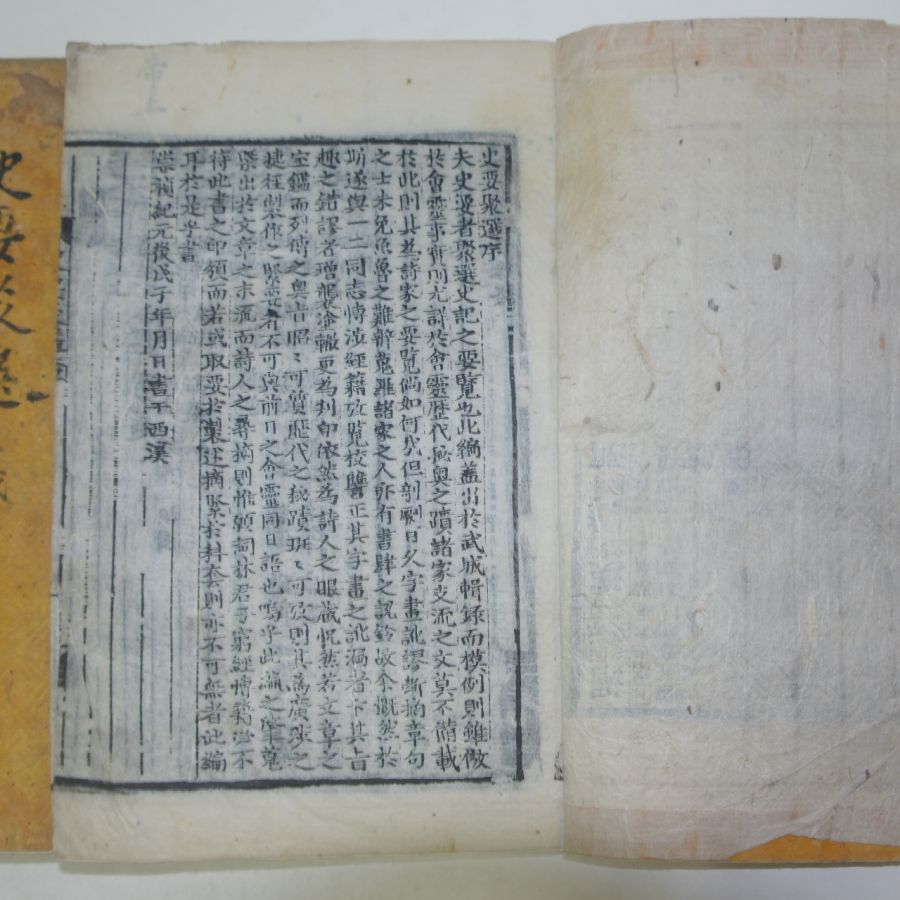 帝王
史要聚選序
夫史要者聚選史記之要覽也此編盖出於武城輯錄而模例則雖倣
於會靈事實則尤詳於會靈歷代秘奥之蹟諸家支流之文莫不備載
於此則其爲詩家之要覽倘如何哉但剞劂日久字畫訛謬斷摘章句
之士未免魚魯之難辨蒐羅諸家之人亦有書肆之說鈴故余慨然於
斯遂與一二同志博涉經籍攷覽校讐正其字畫之訛漏者卞其旨
趣之錯謬者增襲塗轍更為刋印依然為詩人之眼藏怳然若文章之
宝鑑而列傳之奥旨昭〻可質歷代之秘蹟班〻可及則其為廣涉之
捷徑製作之緊要者不可與前日之會靈同日語也嗚乎此編之蒐
槩出於文章之末流而詩人之尋摘則惟願詞林君子窮經博籍必不
待此書之印頒而若或取要於製述摘緊於科套則亦不可無者此編
耳於是乎書
崇禎紀元後戊子年月日書于西溪
史要聚選